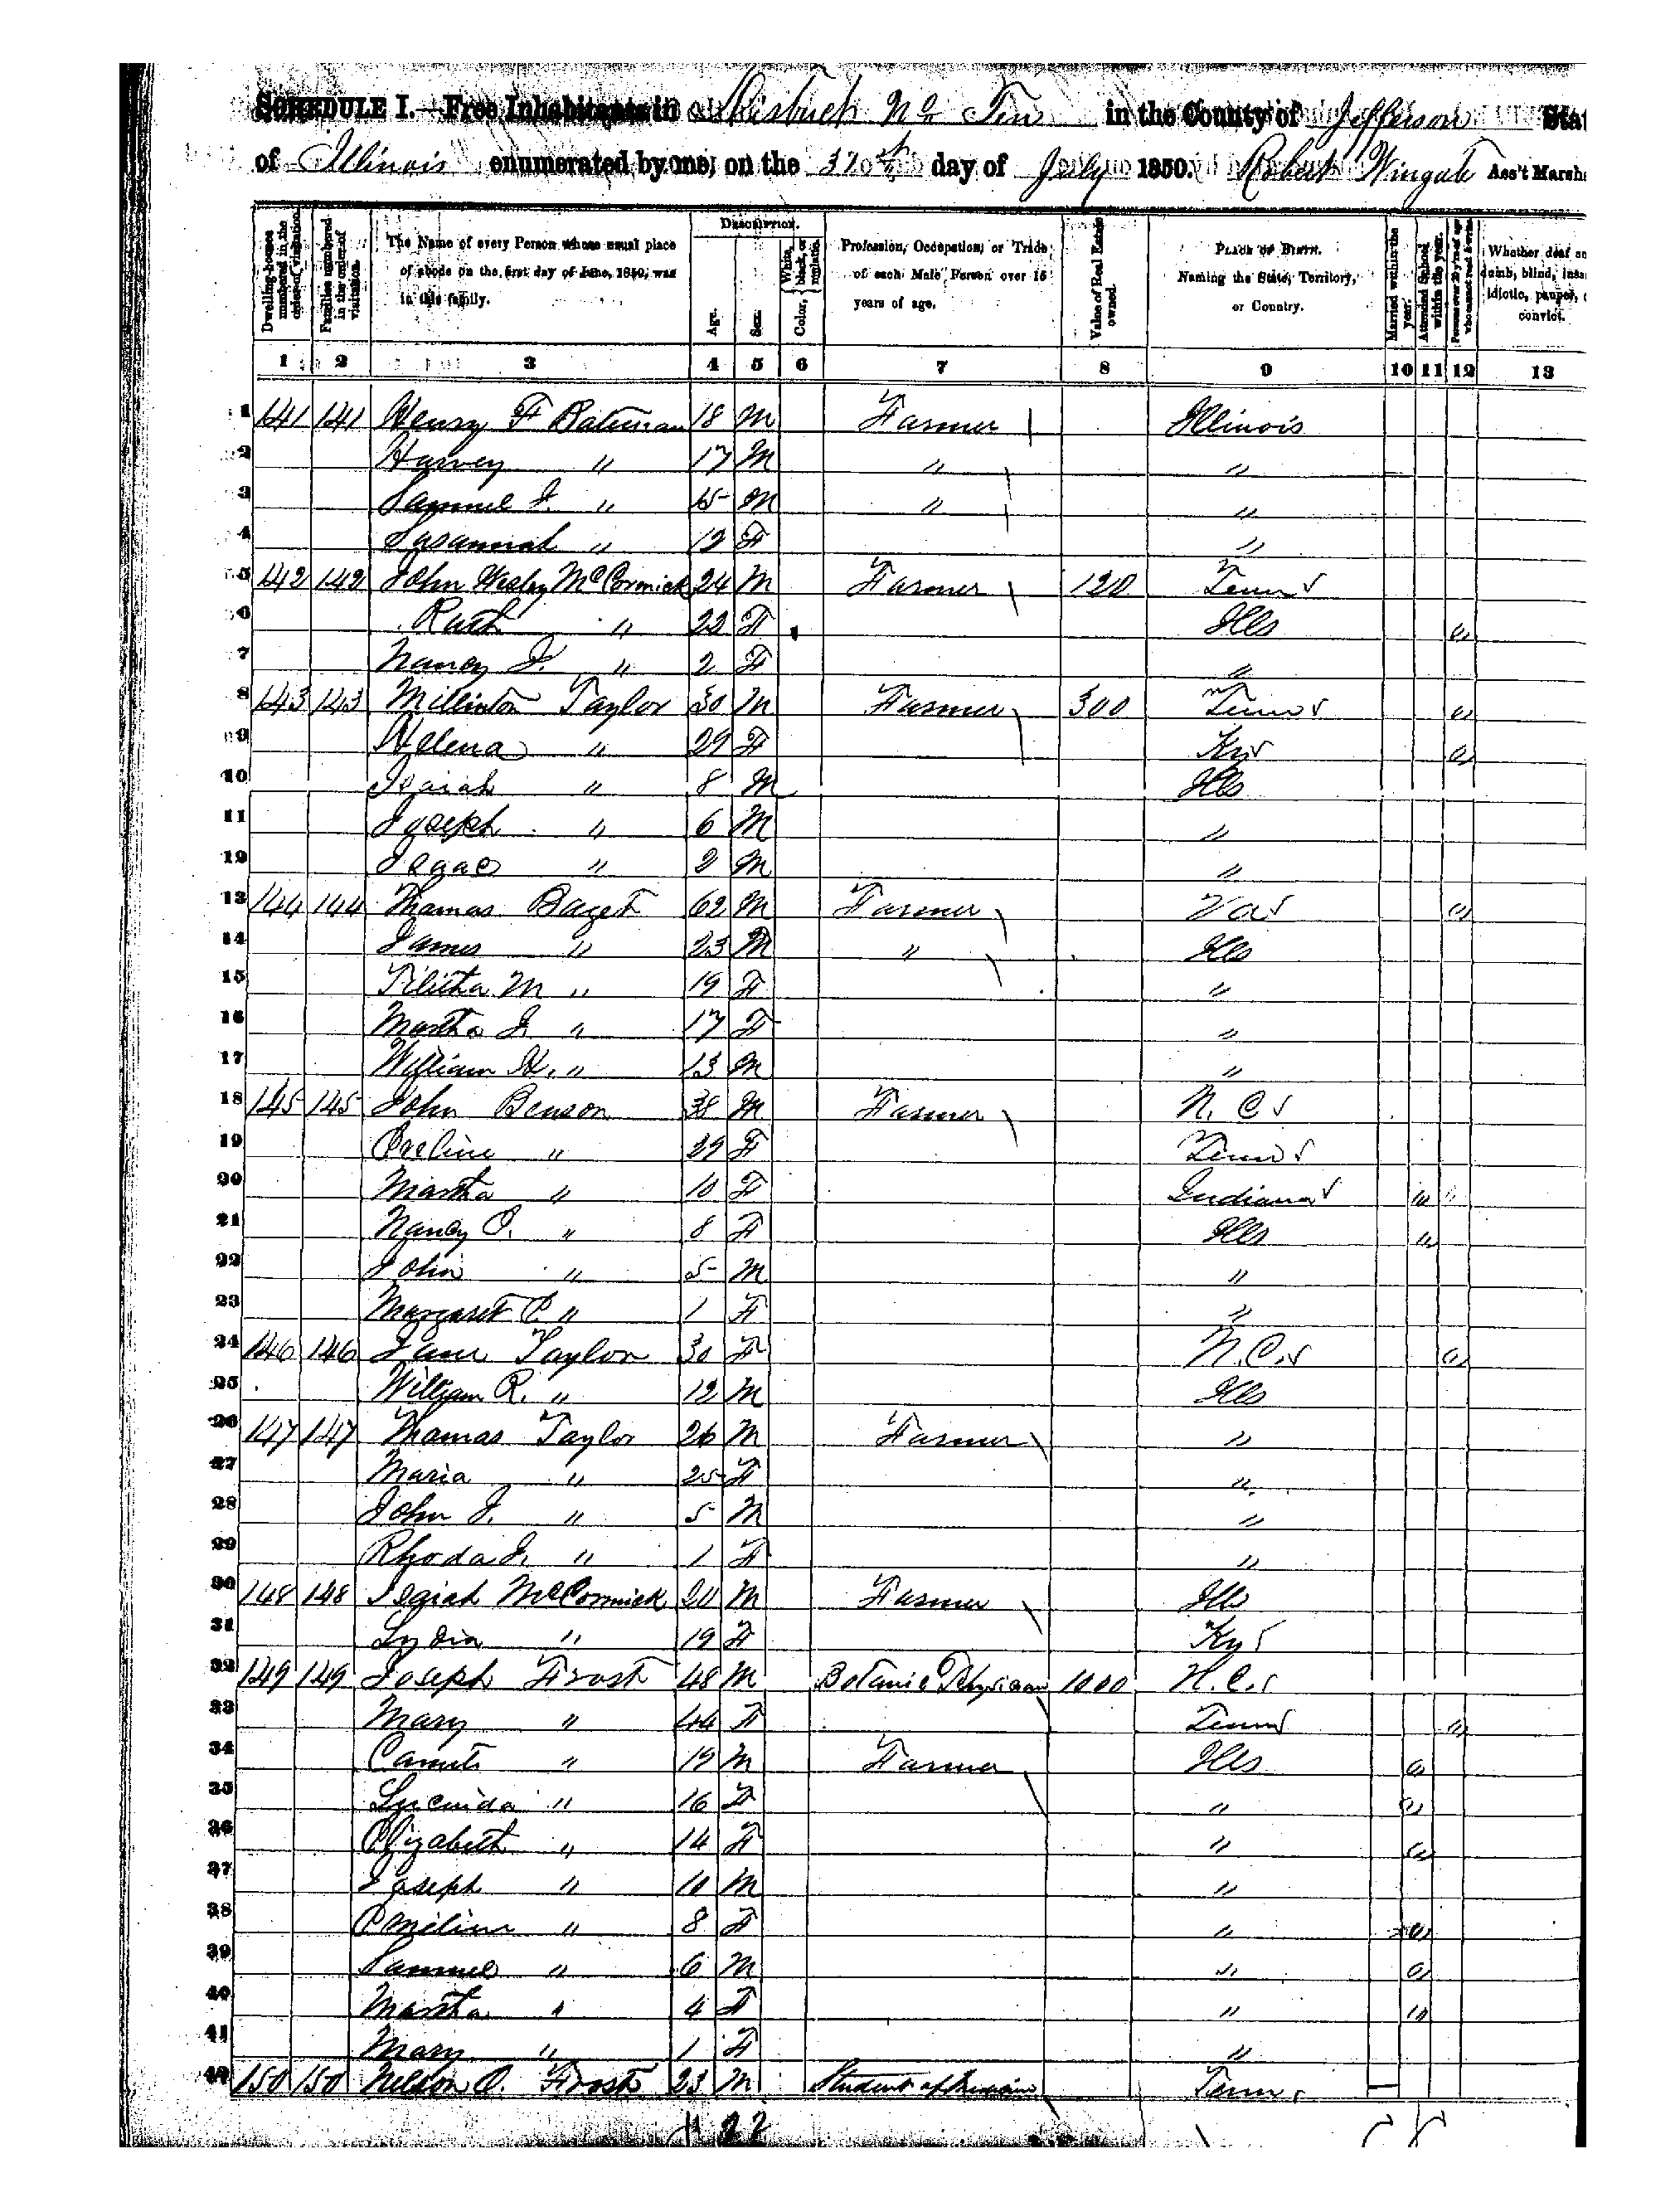 SCHEDULE I. Free Inhabitants in District No Ten in the County of Jefferson Stat
of Illinois enumerated by me, on the day of July 1850. Robert Wingate Ass't Marsha
Dwelling-houses numbered in the order of visitation.
Families numbered in the order of visitation.
The Name of every Person whose usual place of abode on the first day of June, 1850, was in this family.
DESCRIPTION.
Age.
Sex.
Color, White, black, or mulatto.
Profession, Occupation, or Trade of each Male Person over 15 years of age.
Value of Real Estate owned.
PLACE OF BIRTH. Naming the State, Territory, or Country.
Married within the year.
Attended School within the year.
Persons over 20 y'rs of age who cannot read & write.
Whether deaf an dumb, blind, insa idiotic, pauper, convict.
1 2 3 4 5 6 7 8 9 10 11 12 13
1 141 141 Henry F Bateman 18 M Farmer Illinois
2 Harvey " 17 M " "
3 Samuel J. " 15 M " "
4 Susannah " 12 F "
5 142 142 John Wesley McCormick 24 M Farmer 120 Tenn
6 Ruth " 22 F Ills "
7 Nancy J. " 2 F "
8 143 143 Millinton Taylor 30 M Farmer 300 Tenn "
9 Helena " 29 F Ky "
10 Isaiah " 8 M Ills
11 Joseph " 6 M "
12 Isaac " 2 M "
13 144 144 Thomas Baget 62 M Farmer Va "
14 James " 23 M " Ills
15 Tilitha M " 19 F "
16 Martha J. " 17 F "
17 William H. " 13 M "
18 145 145 John Benson 38 M Farmer N. C
19 " 29 F Tenn
20 Martha " 10 F Indiana " "
21 Nancy C. " 8 F Ills "
22 John " 5 M "
23 Margaret C. " 1 F "
24 146 146 Jane Taylor 30 F N.C. "
25 William R. " 12 M Ills
26 147 147 Thomas Taylor 26 M Farmer "
27 Maria " 25 F "
28 John J. " 5 M "
29 Rhoda J. " 1 F "
30 148 148 Isaiah McCormick 20 M Farmer Ills
31 Lydia " 19 F Ky
32 149 149 Joseph Frost 48 M Botanic Physician 1000 N.C.
33 Mary " 44 F Tenn "
34 " 19 M Farmer Ills "
35 Lucinda " 16 F " "
36 Elizabeth " 14 F " "
37 Joseph " 10 M "
38 Emeline " 8 F " "
39 Samuel " 6 M " "
40 Martha " 4 F " "
41 Mary " 1 F "
42 150 150 Nelson O. Frost 23 M Student of Medicine Tenn